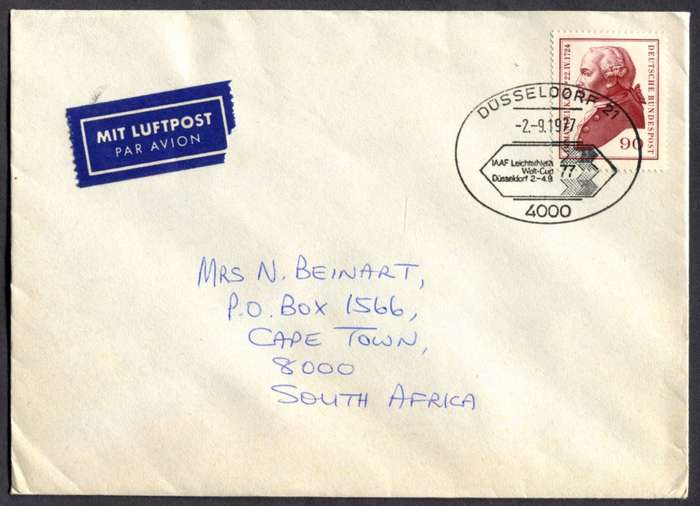 MIT LUFTPOST
PAR AVION
22.IV.1724
DEUTSCHE BUNDESPOST
90
DÜSSELDORF 21
-2.-9.1977
IAAF Leichtathletik
Welt-Cup 77
Düsseldorf 2.-4.9.
4000
MRS N. BEINART,
P.O. BOX 1566,
CAPE TOWN,
8000
SOUTH AFRICA